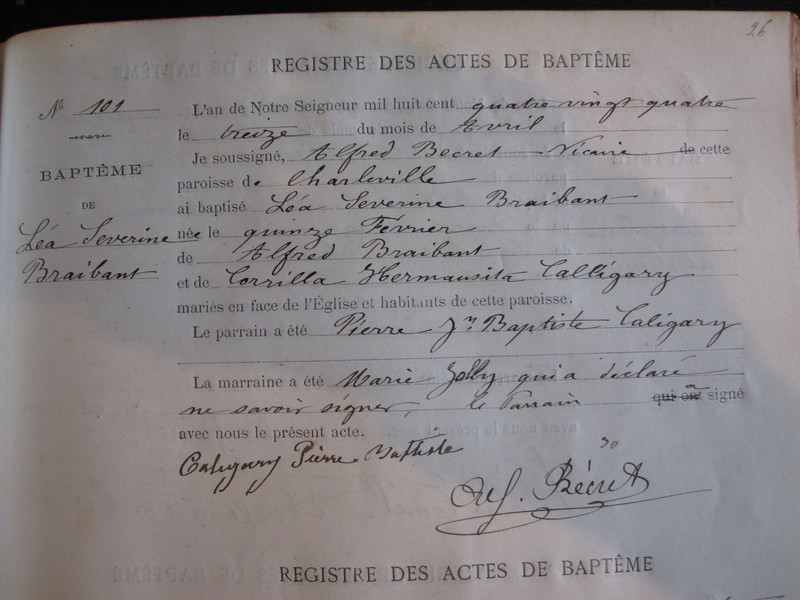 26
REGISTRE DES ACTES DE BAPTÊME
N° 101
L'an de Notre Seigneur mil huit cent quatre vingt quatre
le treize du mois de Avril
Je soussigné, Alfred Becret Vicaire de cette
BAPTÊME
paroisse d. Charleville
DE
ai baptisé Léa Severine Braibant
Léa Severine
Braibant
née le quinze Février
de Alfred Braibant
et de Corrilla Hermansita Calligary
mariés en face de l'Église et habitants de cette paroisse.
Le parrain a été Pierre Jn Baptiste Caligary
La marraine a été Marie Jolly qui a déclaré
ne savoir signer, le Parrain qui ont a signé
avec nous le présent acte.
Caligary Pierre Batiste
Alf. Bécret
REGISTRE DES ACTES DE BAPTÊME